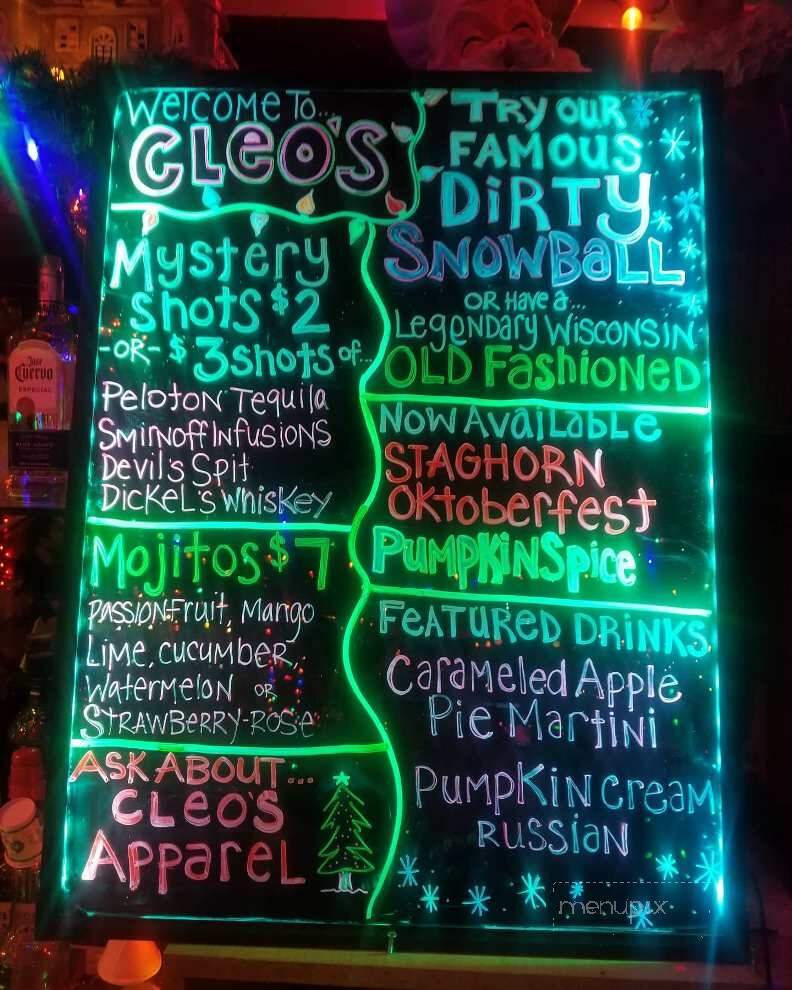 Welcome to...
Cleo's
Mystery
shots $2
-or- $3 shots of...
Peloton Tequila
Smirnoff Infusions
Devil's Spit
Dickel's Whiskey
Mojitos $7
Passion-Fruit, Mango
Lime, cucumber,
Watermelon or
Strawberry-Rose
Ask About...
Cleo's
Apparel
Try our
Famous
Dirty
Snowball
or Have a...
Legendary Wisconsin
Old Fashioned
Now Available
Staghorn
Oktoberfest
Pumpkin Spice
Featured Drinks
Carameled Apple
Pie Martini
Pumpkin Cream
Russian
Jose
Cuervo
ESPECIAL
menupix